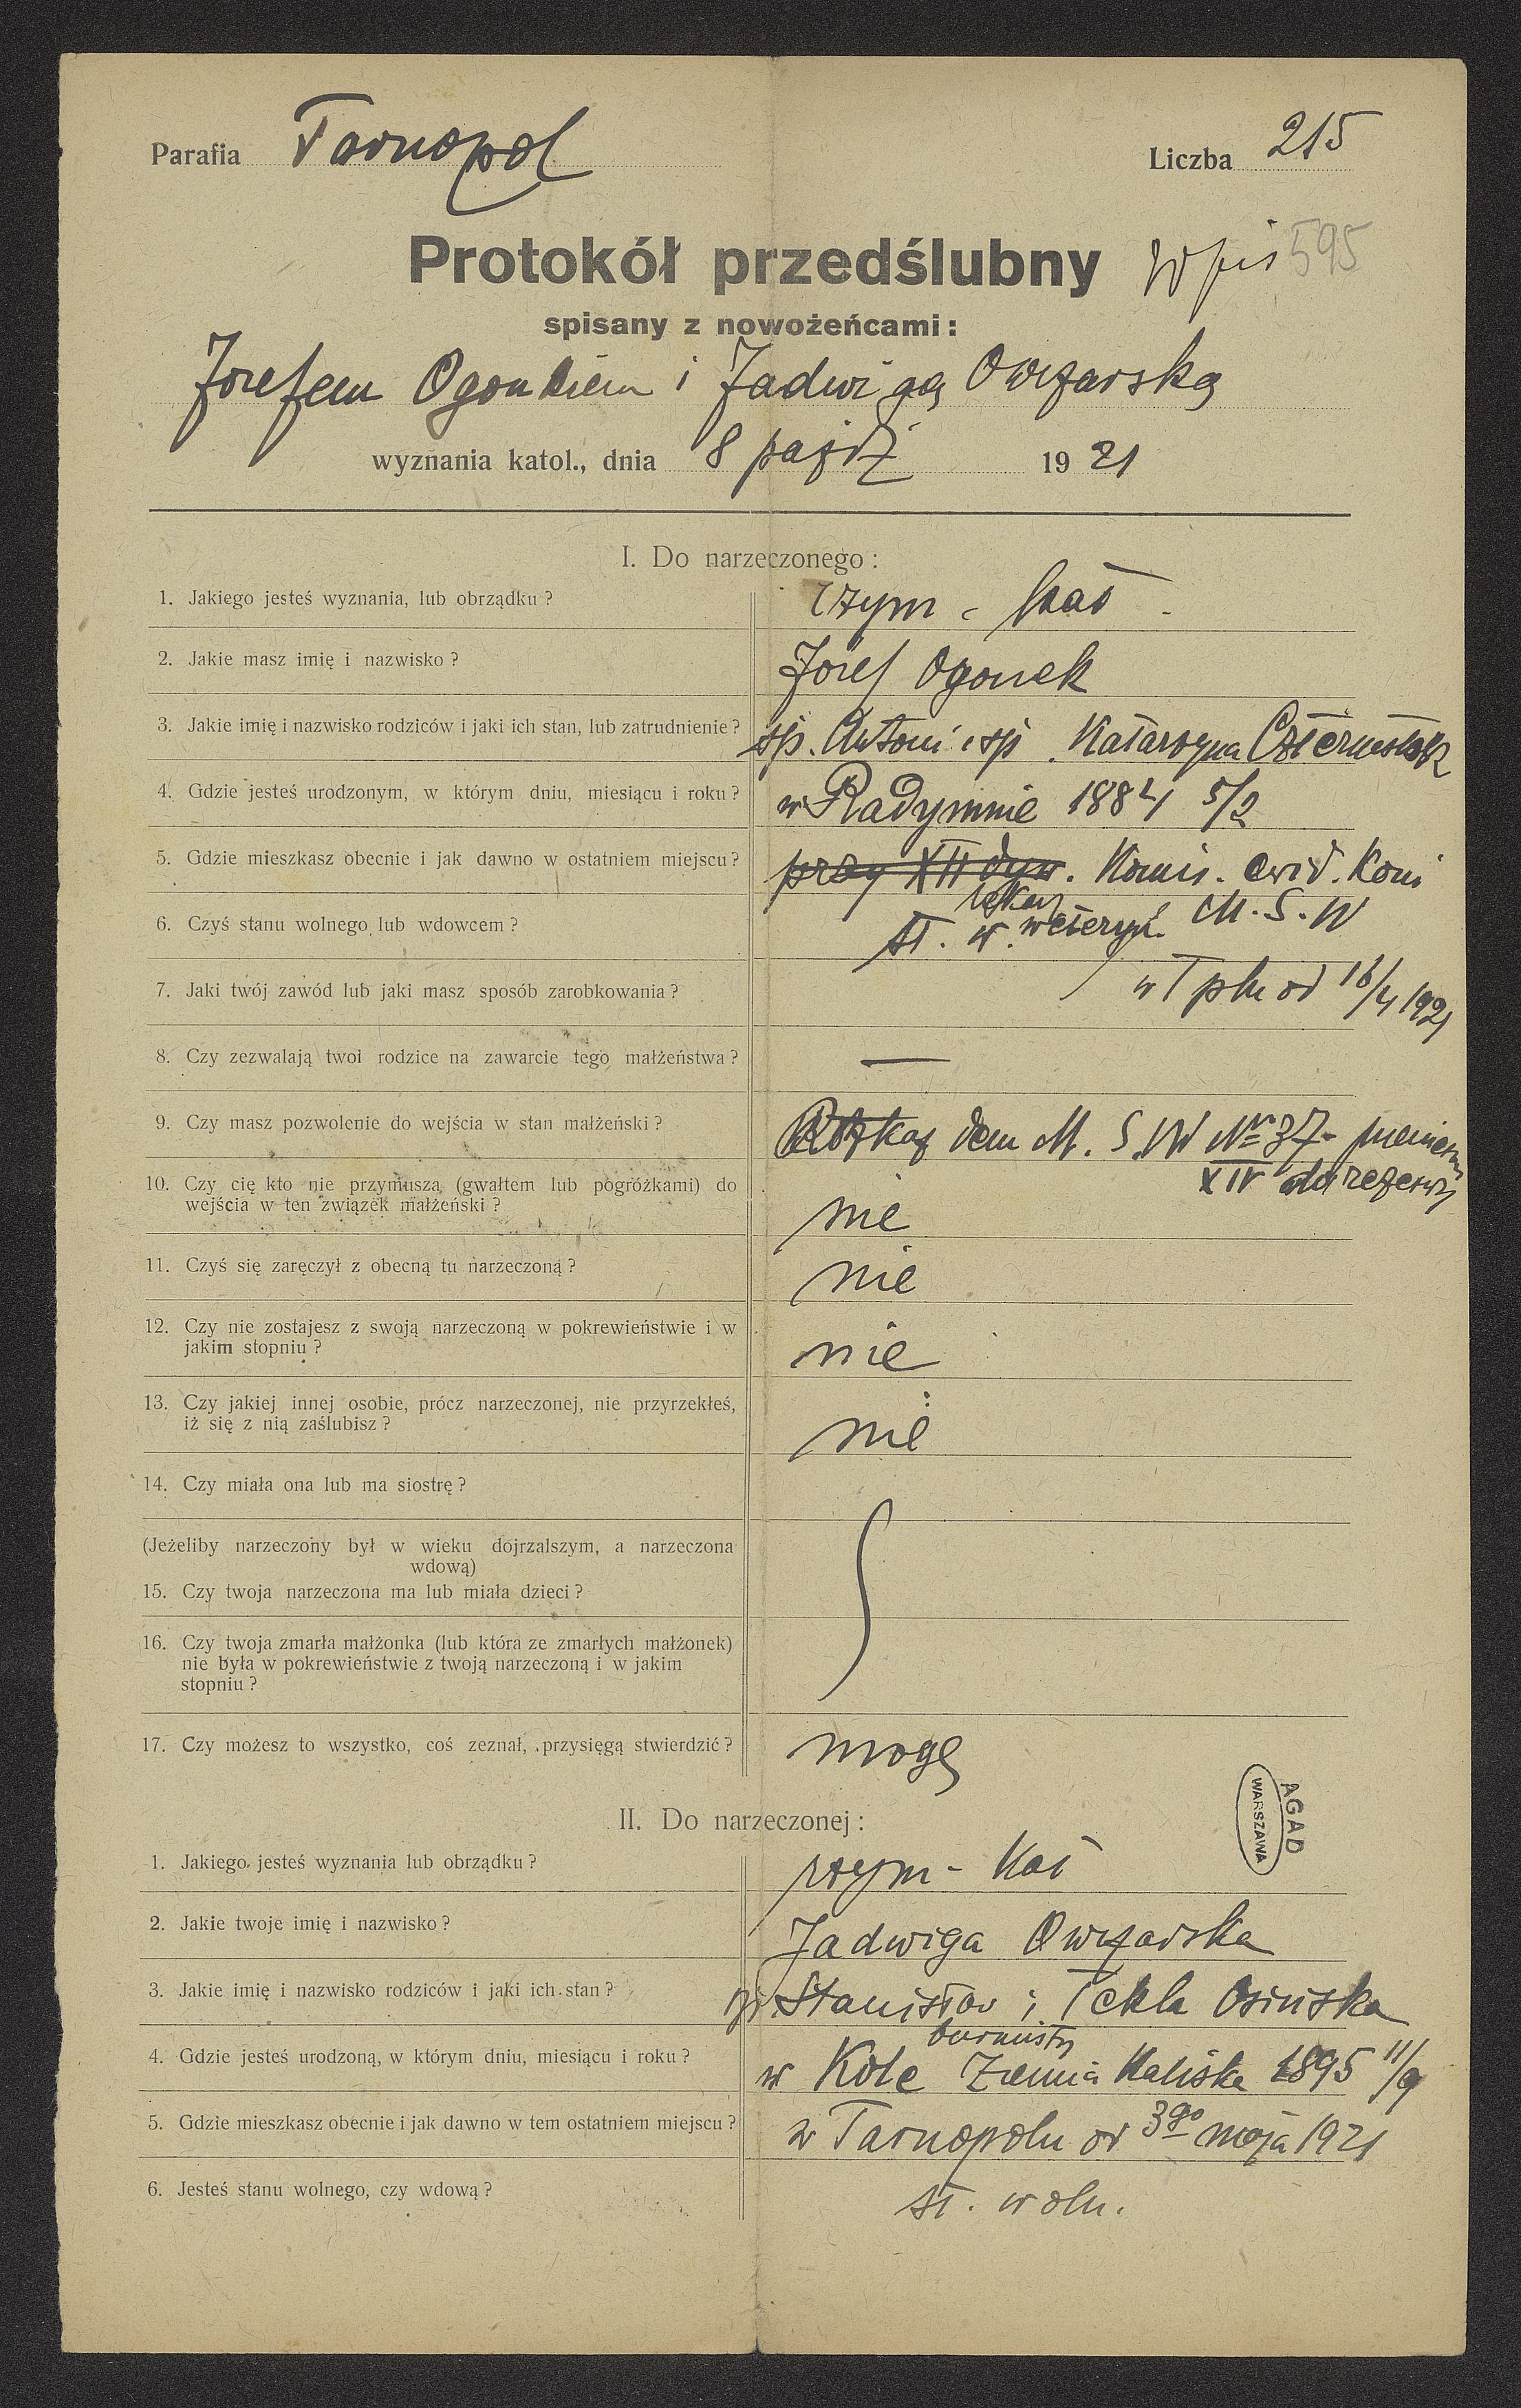 Parafia Tarnopol
Liczba 215
Protokół przedślubny
Wpis 595
spisany z nowożeńcami:
Józefem Ogonkiem i Jadwigą Owczarską
wyznania katol., dnia 8 paźdź 1921
I. Do narzeczonego:
1. Jakiego jesteś wyznania, lub obrządku? rzym - kat.
2. Jakie masz imię i nazwisko? Józef Ogonek
3. Jakie imię i nazwisko rodziców i jaki ich stan, lub zatrudnienie? śp. Antoni i śp. Katarzyna
4. Gdzie jesteś urodzonym, w którym dniu, miesiącu i roku? w Radymnie 1884 5/2
5. Gdzie mieszkasz obecnie i jak dawno w ostatniem miejscu? przy XII dyw. Komis. ewid. Koni
lekarz M. S. W
6. Czyś stanu wolnego lub wdowcem? st. w. weteryn.
7. Jaki twój zawód lub jaki masz sposób zarobkowania? w Tplu od 16/4 1921
8. Czy zezwalają twoi rodzice na zawarcie tego małżeństwa? —
9. Czy masz pozwolenie do wejścia w stan małżeński? Rozkaz dem M. S. W Nr 37
XIV do rezerwy
10. Czy cię kto nie przymusza (gwałtem lub pogróżkami) do
wejścia w ten związek małżeński? nie
11. Czyś się zaręczył z obecną tu narzeczoną? nie
12. Czy nie zostajesz z swoją narzeczoną w pokrewieństwie i w
jakim stopniu? nie
13. Czy jakiej innej osobie, prócz narzeczonej, nie przyrzekłeś,
iż się z nią zaślubisz? nie
14. Czy miała ona lub ma siostrę?
(Jeżeliby narzeczony był w wieku dojrzalszym, a narzeczona
wdową)
15. Czy twoja narzeczona ma lub miała dzieci?
16. Czy twoja zmarła małżonka (lub która ze zmarłych małżonek)
nie była w pokrewieństwie z twoją narzeczoną i w jakim
stopniu?
17. Czy możesz to wszystko, coś zeznał, przysięgą stwierdzić? mogę
AGAD
WARSZAWA
II. Do narzeczonej:
1. Jakiego jesteś wyznania lub obrządku? rzym - kat
2. Jakie twoje imię i nazwisko? Jadwiga Owczarska
3. Jakie imię i nazwisko rodziców i jaki ich stan? śp. Stanisław i Tekla Osińska
burmistrz
4. Gdzie jesteś urodzoną, w którym dniu, miesiącu i roku? w Kole Ziemia Kaliska 1895 11/9
5. Gdzie mieszkasz obecnie i jak dawno w tem ostatniem miejscu? w Tarnopolu od 3go maja 1921
6. Jesteś stanu wolnego, czy wdową? st. woln.